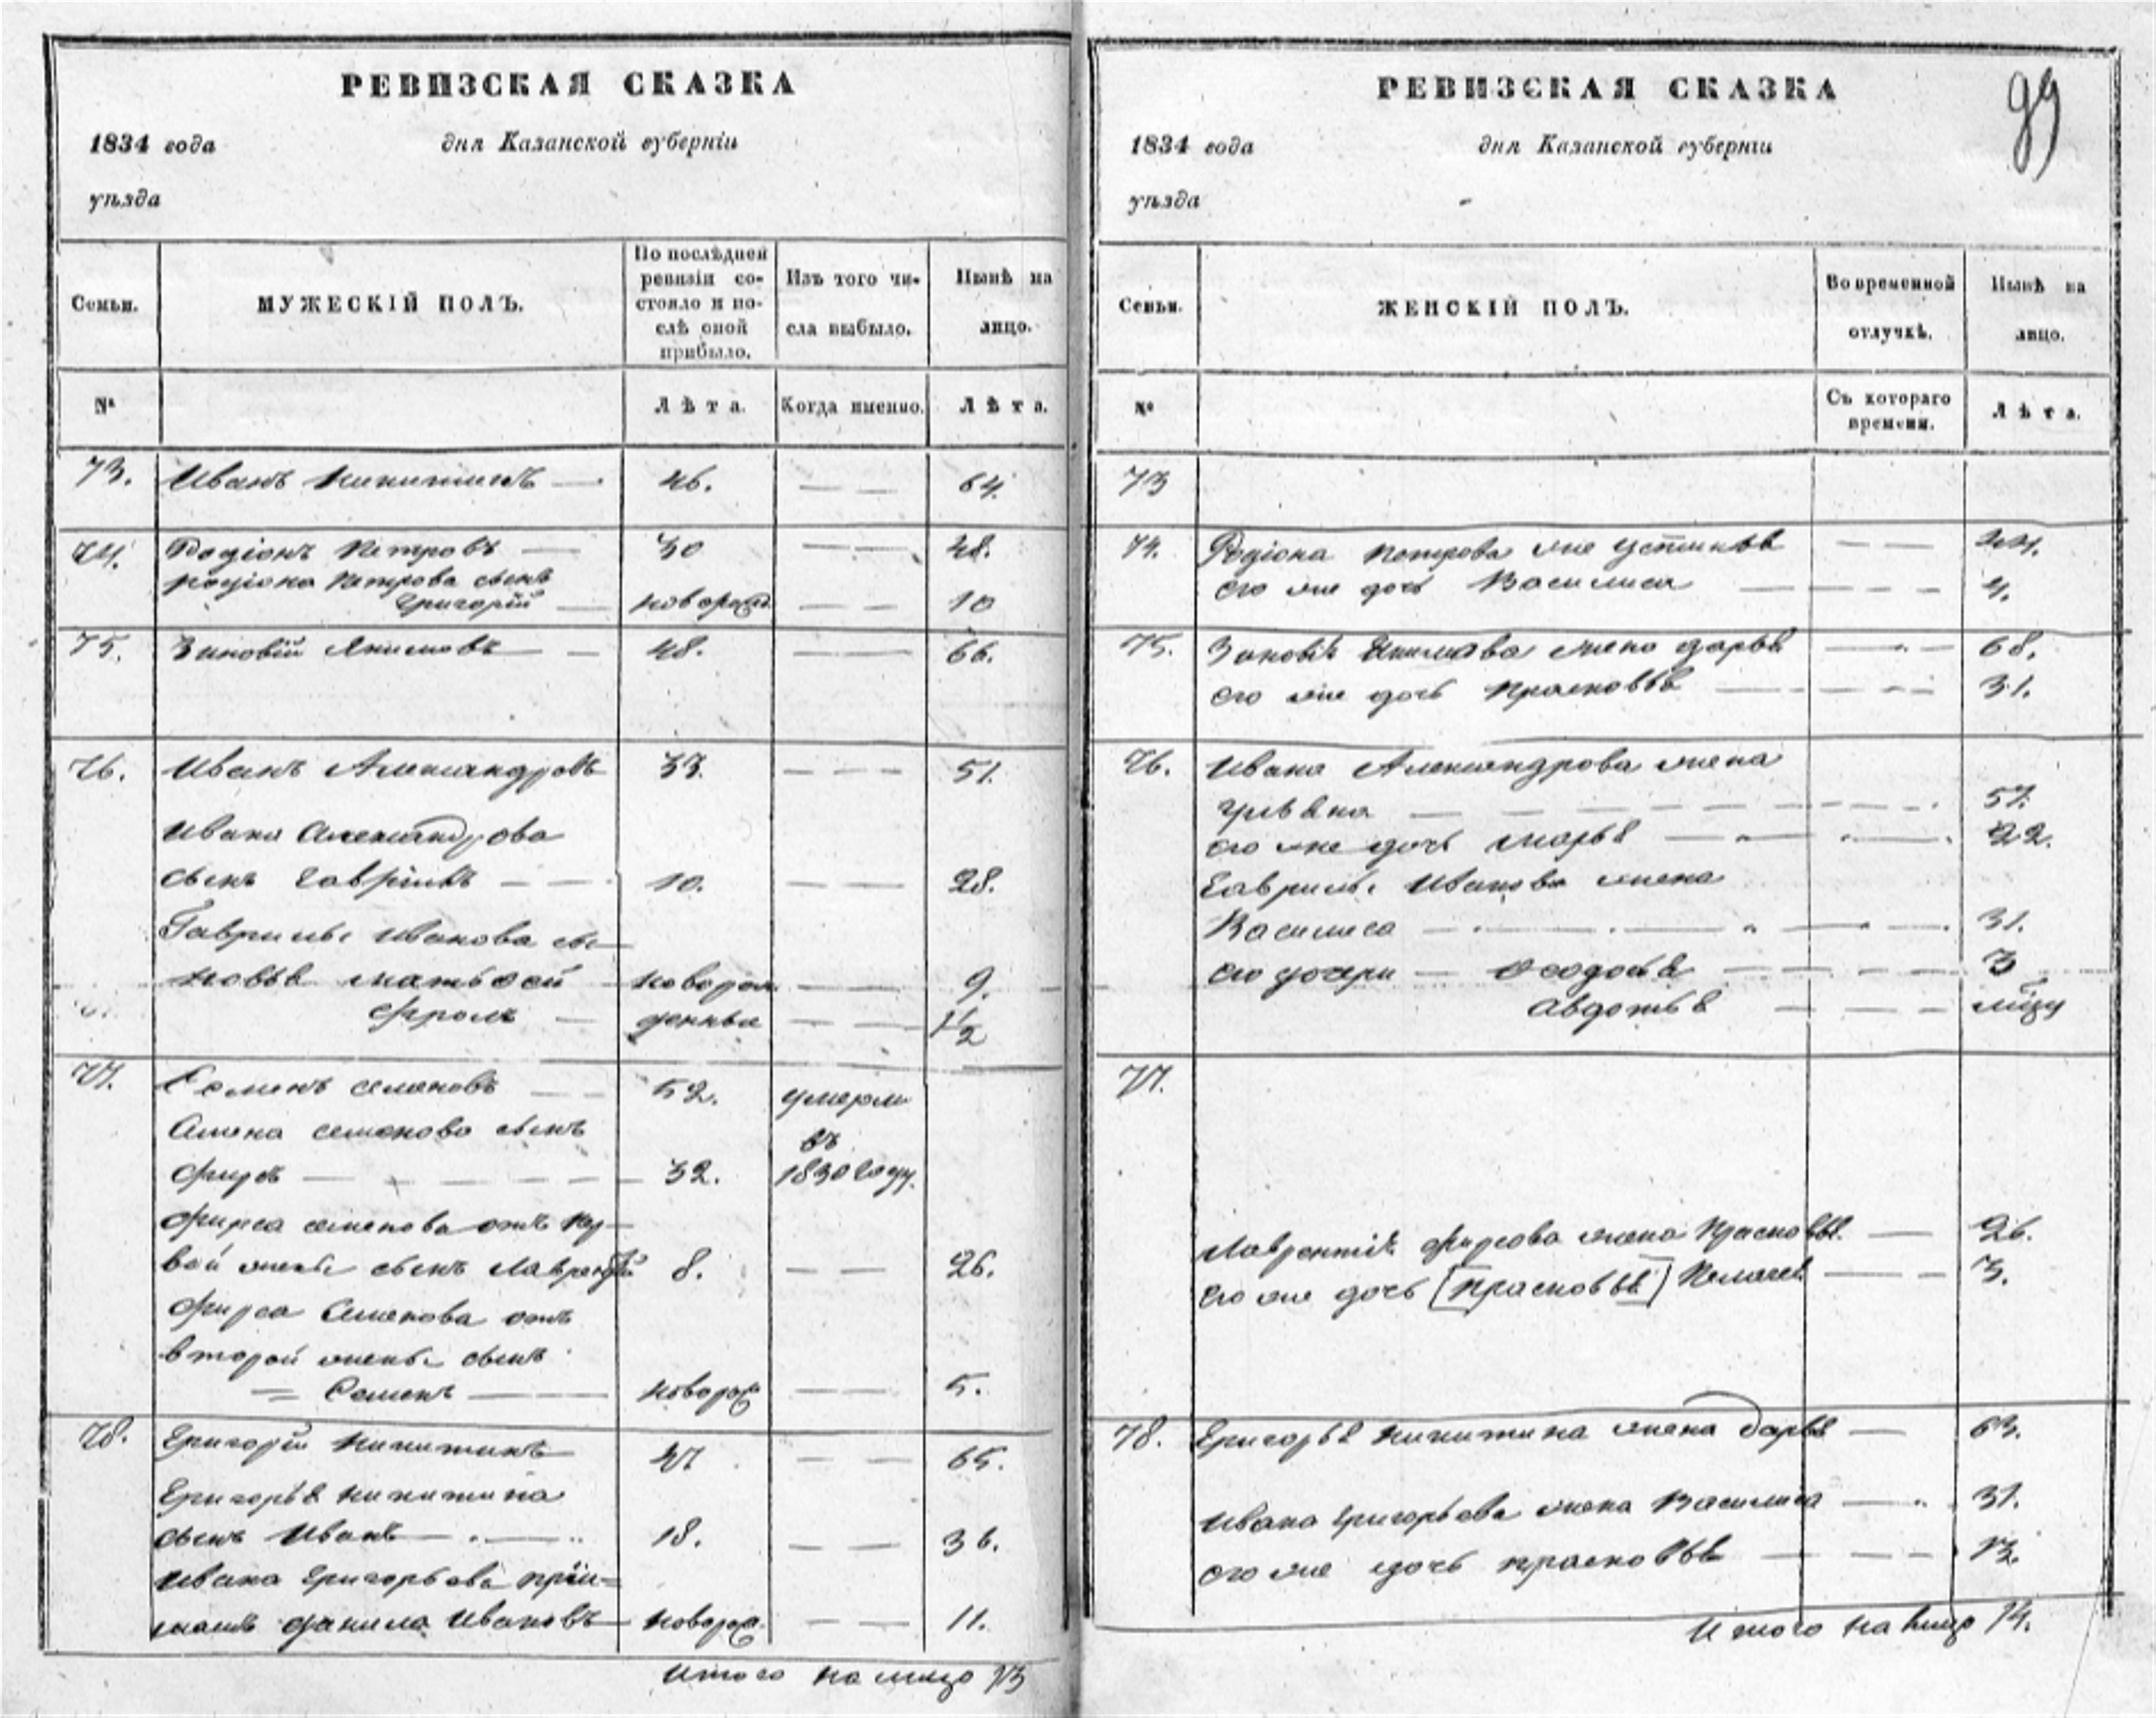 РЕВИЗСКАЯ СКАЗКА
1834 года дня Казанской губерніи
уѣзда
Семьи. МУЖЕСКІЙ ПОЛЪ. По послѣдней ревизіи состояло и послѣ оной прибыло. Изъ того числа выбыло. Нынѣ на лицо.
№ Лѣта. Когда именно. Лѣта.
73. Иванъ Никитинъ — 46. — — 64.
74. Родіонъ Петровъ — 30 — — 48.
родіона Петрова сынъ
Григорій — новорожд. — — 10
75. Зиновій Якимовъ — — 48. — — 66.
76. Иванъ Александровъ 33. — — — 51.
Ивана Александрова
сынъ Гаврилъ — — 10. — — 28.
Гаврилы Иванова сы-
новья матвѣй новорож — — 9.
Фролъ — денные — — 1/2
77. Семенъ семеновъ — — 52. умерли
Семена семенова сынъ въ
Фирсъ — — — — 32. 1830 году.
Фирса семенова отъ пер-
вой жены сынъ Лаврентій 8. — — 26.
Фирса Семенова отъ
второй жены сынъ
= Семенъ — новорож — — 5.
78. Григорій Никитинъ 47 — — 65.
Григорья никитина
сынъ Иванъ — — 18. — — 36.
Ивана Григорьева пріи-
мышъ данила Ивановъ — новорож. — — 11.
Итого на лицо 13
РЕВИЗСКАЯ СКАЗКА
99
1834 года дня Казанской губерніи
уѣзда
Семьи. ЖЕНСКІЙ ПОЛЪ. Во временной отлучкѣ. Нынѣ на лицо.
№ Съ котораго времени. Лѣта.
73
74. Родіона петрова жена устинья — — 44.
его же дочь Василиса — — — — 4.
75. Зиновья Якимова жена дарья — — 68.
его же дочь прасковья — — — — 31.
76. Ивана Александрова жена
ульяна — — — — — — 57.
его же дочь марья — — — 22.
Гаврилы Иванова жена
Василиса — — — — — 31.
его дочери — Федосья — — — — 3
авдотья — — —
77.
Лаврентія фирсова жена Прасковья — 26.
его же дочь [Прасковья] Пелагея — — 3.
78. Григорья никитина жена дарья — 63.
Ивана Григорьева жена Василиса — 31.
его же дочь прасковья — — — 12.
Итого на лицо 14.